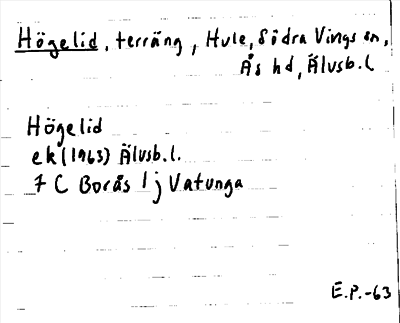 Högelid, terräng, Hule, Södra Vings sn,
Ås hd, Älvsb. l
Högelid
ek (1963) Älvsb. l.
7 C Borås 1 j Vatunga
E.P.-63